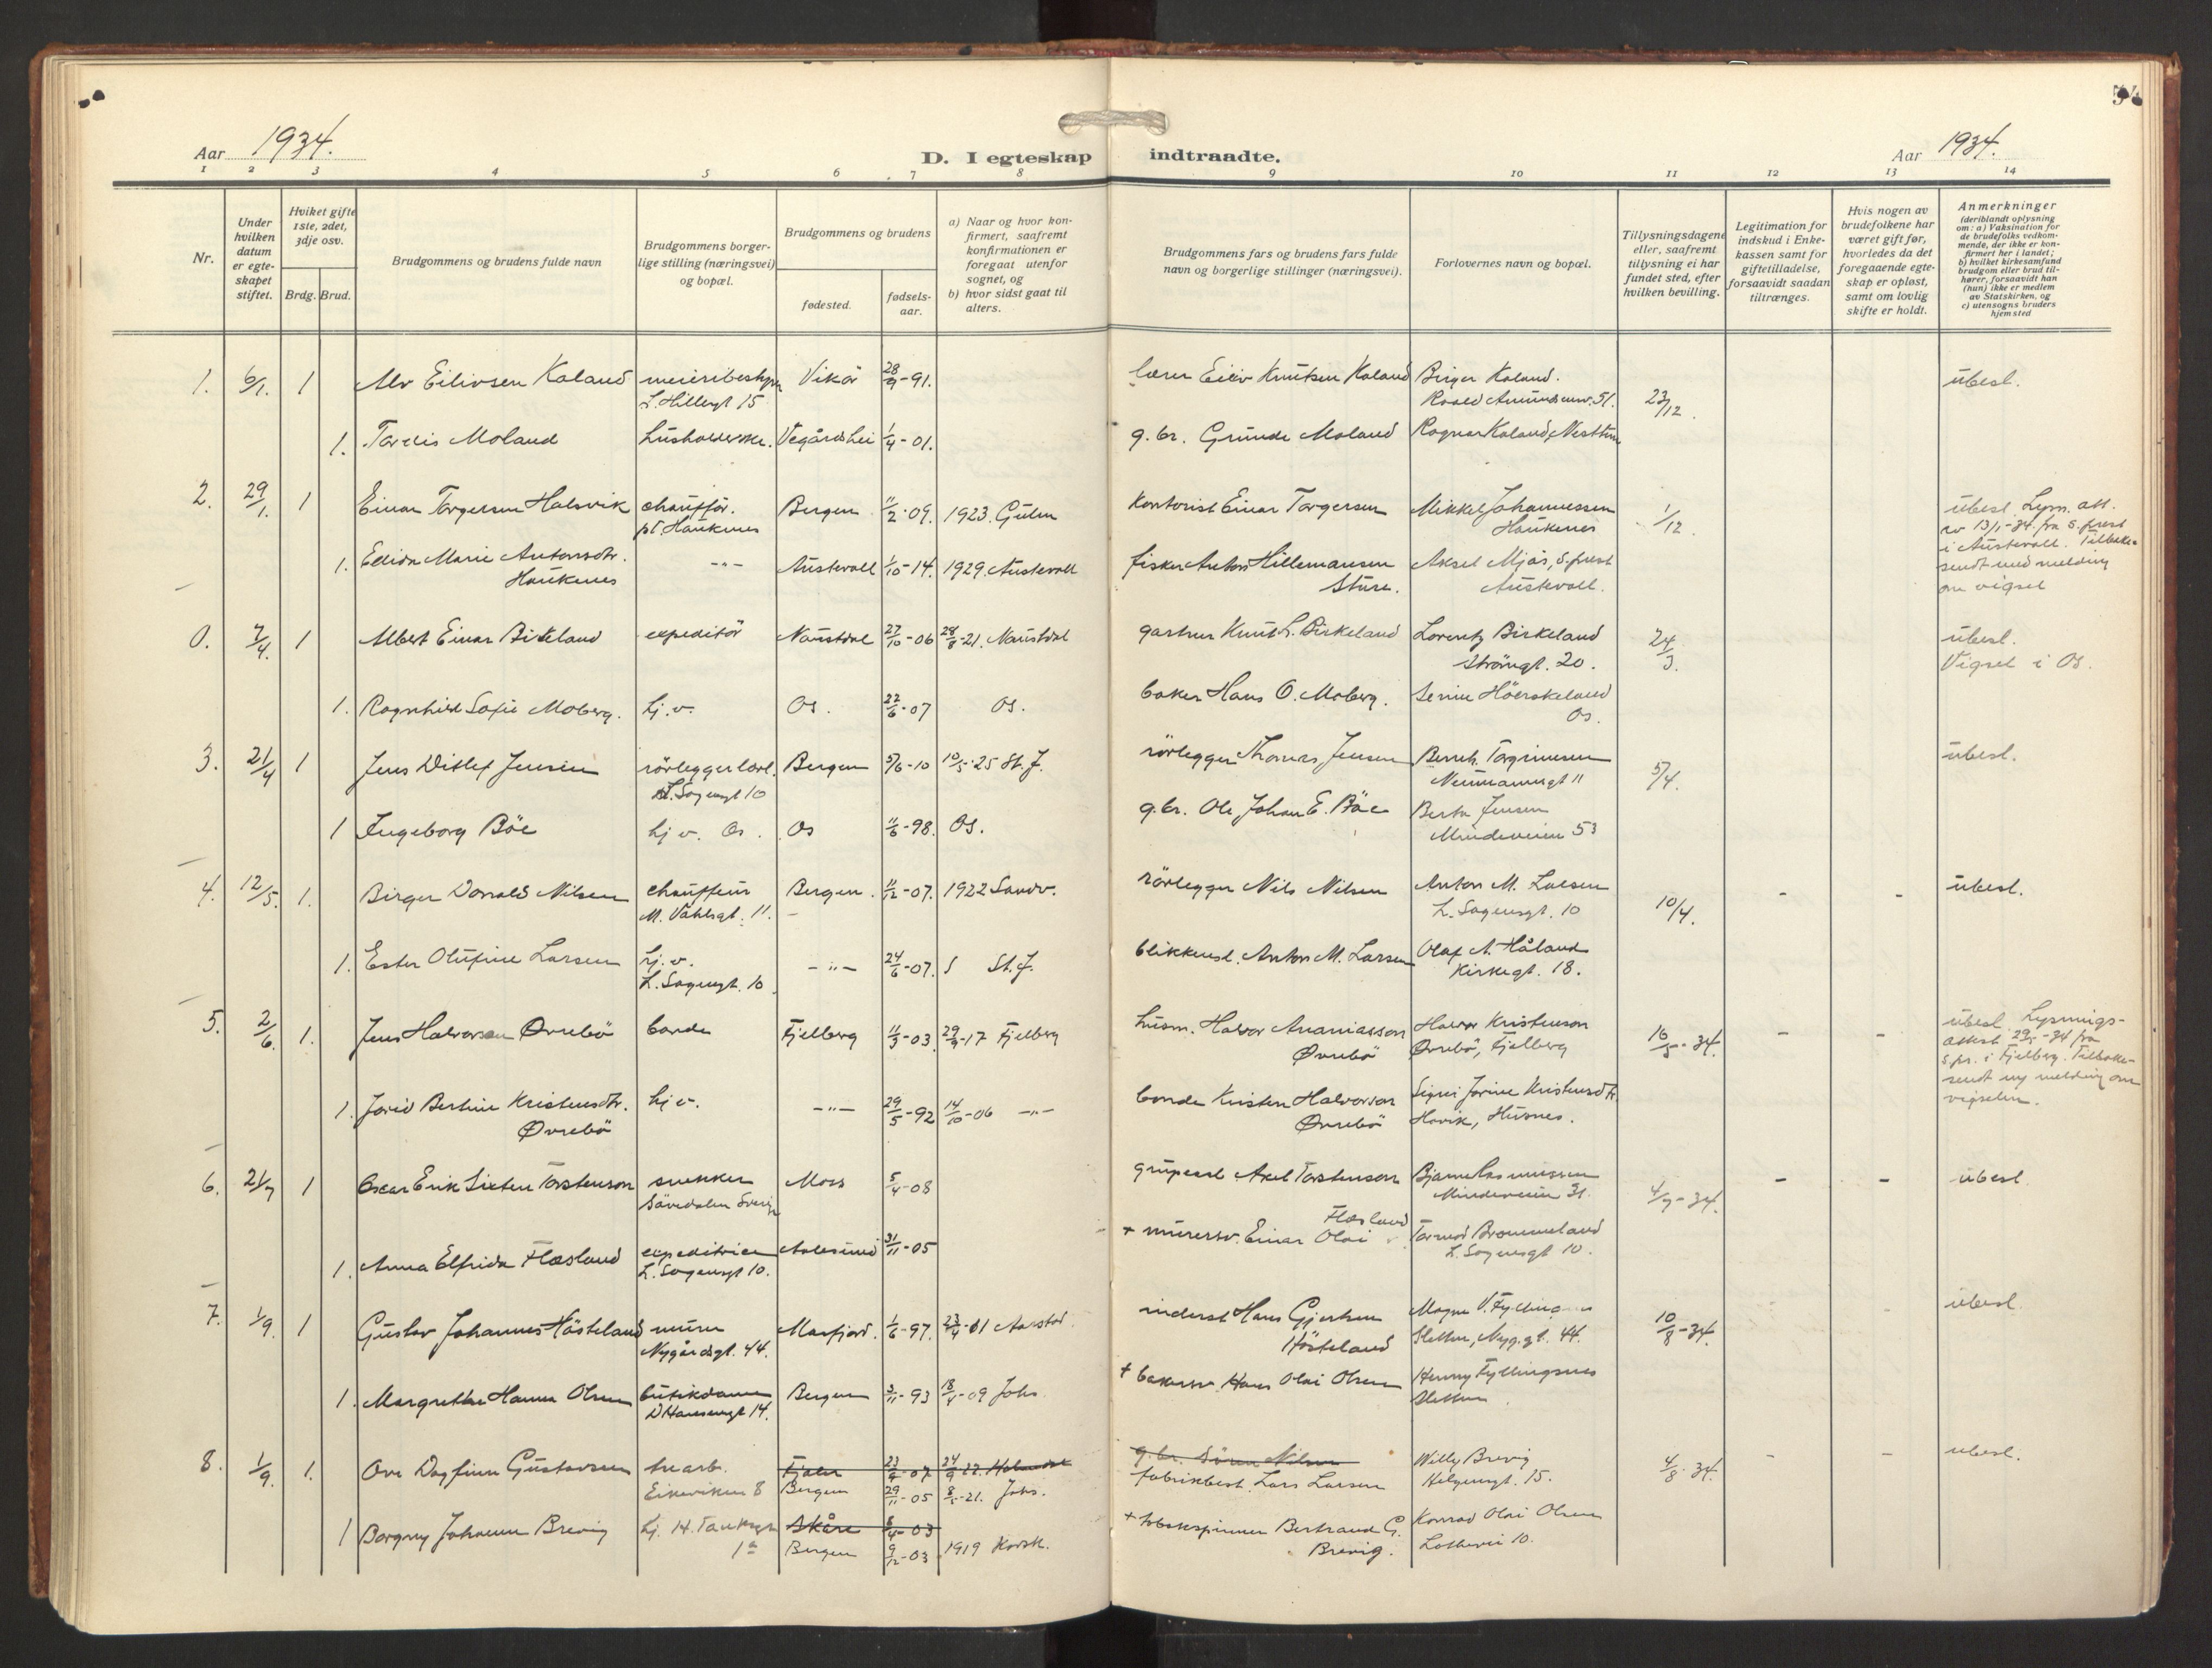 54
Aar 1934.
D. I egteskap indtraadte.
Aar 1934.
1 2 3 4 5 6 7 8 9 10 11 12 13 14
Nr.
Under hvilken datum er egteskapet stiftet.
Hviket gifte 1ste, 2det, 3dje osv.
Brdg. Brud.
Brudgommens og brudens fulde navn
Brudgommens borgerlige stilling (næringsvei) og bopæl.
Brudgommens og brudens
fødested.
fødselsaar.
a) Naar og hvor konfirmert, saafremt konfirmationen er foregaat utenfor sognet, og
b) hvor sidst gaat til alters.
Brudgommens fars og brudens fars fulde navn og borgerlige stillinger (næringsvei).
Forlovernes navn og bopæl.
Tillysningsdagene eller, saafremt tillysning ei har fundet sted, efter hvilken bevilling.
Legitimation for indskud i Enkekassen samt for giftetilladelse, forsaavidt saadan tiltrænges.
Hvis nogen av brudefolkene har været gift før, hvorledes da det foregaaende egteskap er opløst, samt om lovlig skifte er holdt.
Anmerkninger (deriblandt oplysning om: a) Vaksination for de brudefolks vedkommende, der ikke er konfirmert her i landet; b) hvilket kirkesamfund brudgom eller brud tilhører, forsaavidt han (hun) ikke er medlem av Statskirken, og c) utensogns bruders hjemsted
1. 6/1. 1 Alv Eilivsen Kaland Vikör 28/9-91. lærer Eiliv Knutsen Kaland Birger Kaland. 23/12. übesl.
L. Hillesgt 15 Roald Amundsensv. 51.
1. Tordis Moland husholderske. Vegårdshei 1/4-01. g.br. Grunde Moland Ragnar Kaland, Nesttun
2. 29/1. 1 Einar Torgersen Halsvik chauffør. Bergen 11/2-09. 1923. Gulen kontorist Einar Torgersen Mikkel Johannessen 1/12 übesl. Lysn. att.
pt. Haukenes Haukenes av 13/1-34 fra s.prest
1. Marie Antonsdtr. -"- Austevoll 1/10-14. 1929. Austevoll fisker Anton Hillemansen Aksel Mjös, s.prest i Austevoll. Tilbake-
Haukenes Störe. Austevoll. sendt med melding
om vigsel
0. 7/4. 1 Albert Einar Birkeland expeditör Naustdal 27/10-06 28/8-21. Naustdal gartner Knut L. Birkeland Lorentz Birkeland 24/3. übesl.
Strömgt. 20. Vigsel i Os.
1. Ragnhild Sofie Moberg. hj.v. Os. 22/6-07 Os. baker Hans O. Moberg.
Os.
3. 21/4 1 Jens Ditlef Jensen rörleggerlærl. Bergen 5/6-10 10/5-25 St. J. rörlegger Thomas Jensen Bernh. Torgrimsen 5/4. übesl.
L. Sagensgt 10 Neumannsgt 11
1 Ingeborg Böe hj v. Os. Os 11/6-98. Os. g.br. Ole Johan E. Böe Berta Jensen
Mindeveien 53
4. 12/5. 1. Birger Donald Nilsen chauffeur Bergen. 11/12-07. 1922 Sandv. rörlegger Nils Nilsen Anton M. Larsen 10/4. - - übesl.
M. Vahlsgt. 11. L. Sagensgt. 10
1. Ester Olufine Larsen hj.v. -"- 24/6-07. St. J. blikkensl. Anton M. Larsen Olaf A. Håland
L. Sagensgt. 10 Kirkegt. 18.
5. 2/6. 1. Jens Halvorsen Øvrebö bonde Fjelberg 11/3-03. 29/9-17 Fjelberg husm. Halvor Ananiasson Halvor Kristenson 16/5-34. - - übesl. Lysnings-
Øvrebö Øvrebö, Fjelberg attest 29/5-34 fra
s.pr. i Fjelberg. Tilbake-
1. Jorid Bertine Kristensdtr. hj v. -"- 29/5-92 14/10-06 -"- bonde Kristen Halvorson Signi Jorine Kristensdtr. sendt m melding om
Øvrebö Øvrebö Havik, Husnes. vigselen.
6. 21/7 1 Oscar Erik Sixten Torstenson snekker Moss 5/4-08 Axel Torstenson Bjarne Rasmussen 4/7-34. - - übesl
Sävedalen Sverige Mindeveien 31.
1. Anna Elfrida Flæsland expeditrice Aalesund 31/11-05 + murersv. Einar Olai Flæsland Tormod Brommeland
L. Sagensgt 10. L. Sagensgt 10.
7. 1/9. 1 Gustav Johannes Hösteland murer Masfjord. 1/6-97. 23/4-11 Aarstad. inderst Hans Gjertsen 10/8-34. übesl.
Nygårdsgt. 44. Hösteland Sletten, Nyg.gt. 44.
1. Margrethe Hanna Olsen butikdame Bergen 3/11-93 18/4-09 Johs. + bakersv. Hans Olai Olsen Henny Fyllingsnes
D. Hansensgt 14. Sletten
8. 1/9. 1. Ove Dagfinn Gustavsen Fjaler 23/9-07 24/9-22. g.br. Sören Nilsen Willy Brevig 4/8-34. - - übesl.
Eikeviken 8 Bergen 29/11-05 8/5-21. Johs. fabrikbest. Lars Larsen Helgensgt. 15.
1 Borgny Johanne Brevig hj. H. Tanksgt Skåre 8/4-03 + tobakspinner Bertrand G. Brevig. Konrad Olai Olsen
1a Bergen 9/12-03 1919 Korsk. Lothevei 10.